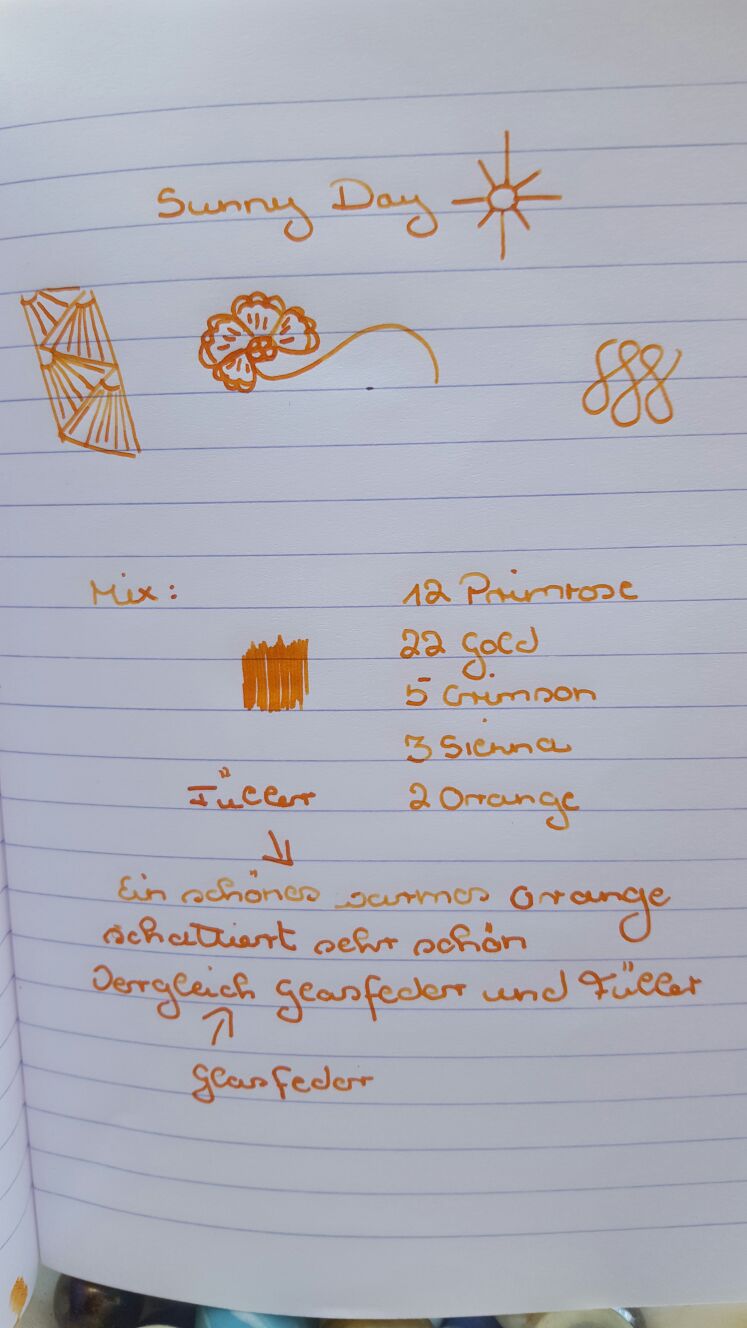 Sunny Day
Mix: 12 Primrose
22 Gold
5 Crimson
3 Sienna
Füller 2 Orange
Ein schönes warmes Orange
schattiert sehr schön
Vergleich Glasfeder und Füller
Glasfeder